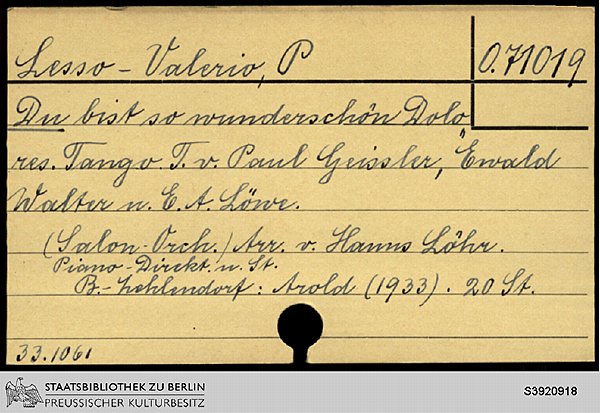 Lesso-Valerio, P
O.71019
Du bist so wunderschön Dolo
res. Tango. T. v. Paul Geissler, Ewald
Walter u. E. A. Löwe.
(Salon-Orch.) Arr. v. Hanns Löhr.
Piano-Direkt. u. St.
B.-Zehlendorf: Arold (1933). 20 St.
33.1061
STAATSBIBLIOTHEK ZU BERLIN
PREUSSISCHER KULTURBESITZ
S3920918